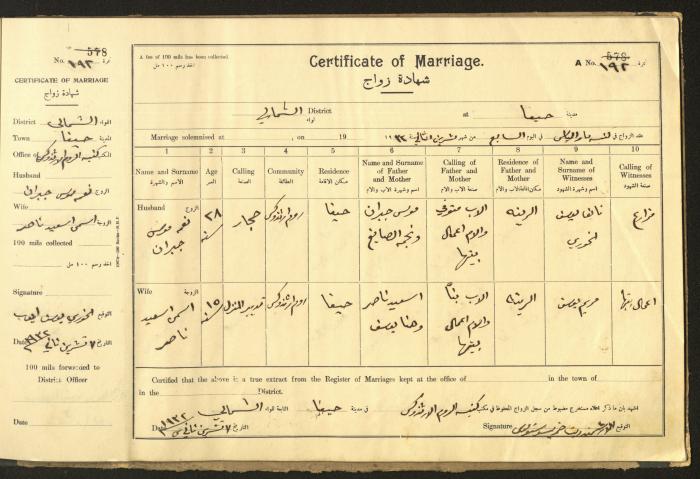 578
No. ١٩٢ نمرة
CERTIFICATE OF MARRIAGE
شهادة زواج
District الشمالي اللواء
Town حيفا المدينة
Office of كنيسة الروم الارثوذكس
Husband الزوج
نعمه موسى جبران
Wife الزوجة
اسمى اسعيد ناصر
100 mils collected
اخذ رسم ١٠٠ مل
Signature
الخوري يوسف التوقيع
Date ٧ تشرين ثاني ١٩٣٢ التاريخ
100 mils forwarded to
District Officer
Date
A fee of 100 mils has been collected.
اخذ رسم ١٠٠ مل
Certificate of Marriage.
شهادة زواج
578
A No. ١٩٢ نمرة
الشمالي District لواء
at حيفا مدينة
Marriage solemnised at , on 19
عقد الزواج في في اليوم السابع من شهر تشرين الثاني سنة ١٩٣٢
1 2 3 4 5 6 7 8 9 10
Name and Surname الاسم والشهرة
Age العمر
Calling الصنعة
Community الطائفة
Residence مكان الاقامة
Name and Surname of Father and Mother اسم وشهرة الاب والام
Calling of Father and Mother صنعة الاب والام
Residence of Father and Mother مكان اقامة الاب والام
Name and Surname of Witnesses اسم وشهرة الشهود
Calling of Witnesses صنعة الشهود
Husband الزوج
نعمه موسى جبران
٢٨ سنة
حجار
روم ارثوذكس
حيفا
موسى جبران ونجمه الصايغ
الاب متوفي والام اعمال بيتها
الرينه
نايف يوسف الخوري
مزارع
Wife الزوجة
اسمى اسعيد ناصر
١٥ سنة
تدبير المنزل
روم ارثوذكس
حيفا
اسعيد ناصر وحنا يوسف
الاب بنّا والام اعمال بيتها
الرينه
مريم يوسف
اعمال بيتها
Certified that the above is a true extract from the Register of Marriages kept at the office of in the town of
in the District.
اشهد بان ما ذكر اعلاه مستخرج مضبوط من سجل الزواج المحفوظ في مكتب كنيسة الروم الارثوذكس في مدينة حيفا التابعة للواء الشمالي
التاريخ ٧ تشرين ثاني سنة ١٩٣٢
Date
Signature التوقيع